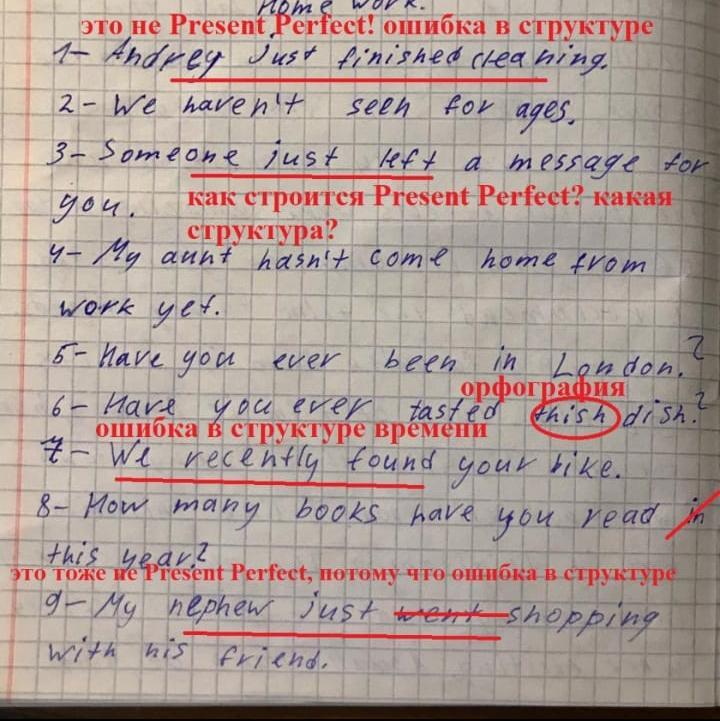 Home work.
это не Present Perfect! ошибка в структуре
1- Andrey just finished cleaning.
2- We haven't seen for ages.
3- Someone just left a message for
you.
как строится Present Perfect? какая
структура?
4- My aunt hasn't come home from
work yet.
5- Have you ever been in London.?
орфография
6- Have you ever tasted thish dish.?
ошибка в структуре времени
7- We recently found your bike.
8- How many books have you read in
this year.?
это тоже не Present Perfect, потому что ошибка в структуре
9- My nephew just went shopping
with his friend.